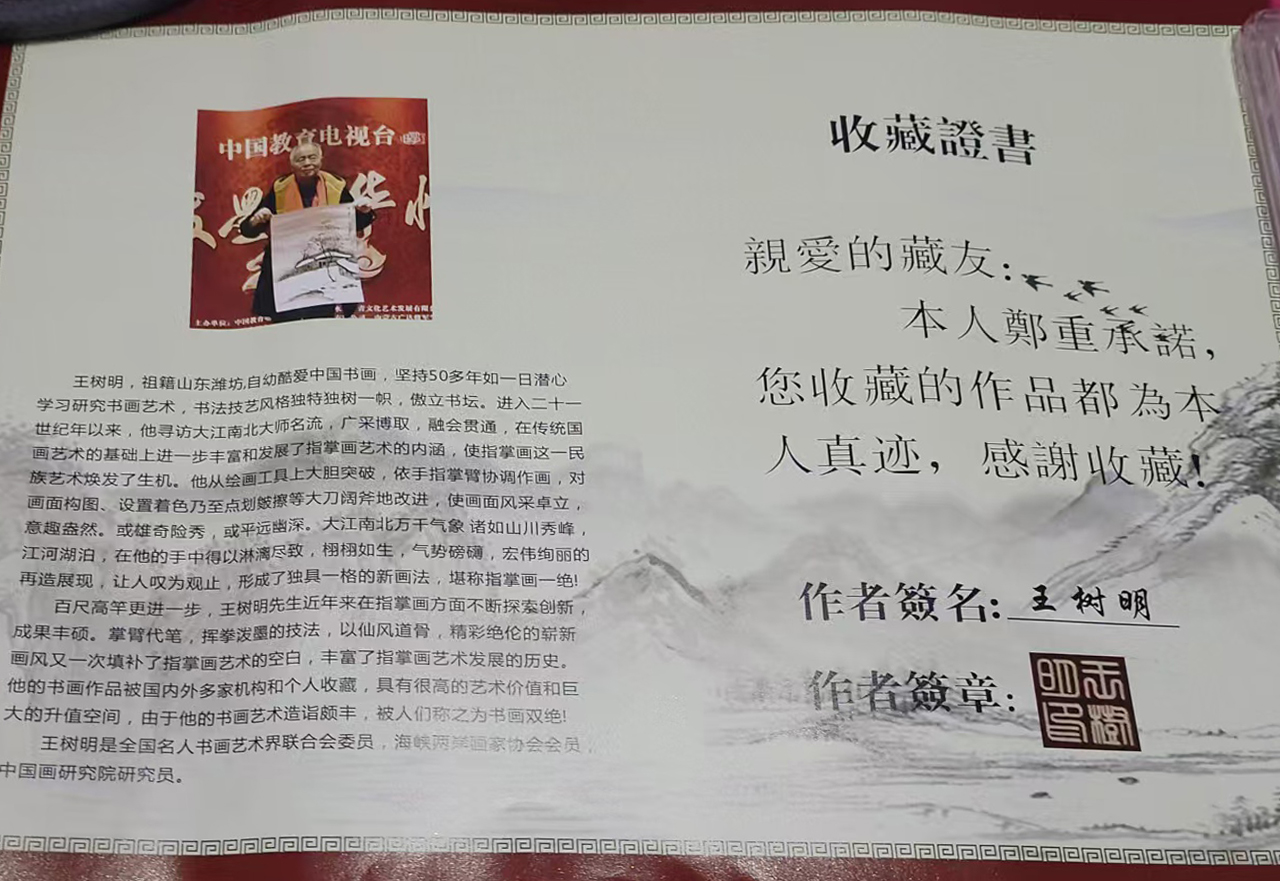 中国教育电视台
王树明，祖籍山东潍坊,自幼酷爱中国书画，坚持50多年如一日潜心
学习研究书画艺术，书法技艺风格独特独树一帜，傲立书坛。进入二十一
世纪年以来，他寻访大江南北大师名流，广采博取，融会贯通，在传统国
画艺术的基础上进一步丰富和发展了指掌画艺术的内涵，使指掌画这一民
族艺术焕发了生机。他从绘画工具上大胆突破，依手指掌臂协调作画，对
画面构图、设置着色乃至点划皴擦等大刀阔斧地改进，使画面风采卓立，
意趣盎然。或雄奇险秀，或平远幽深。大江南北万千气象 诸如山川秀峰，
江河湖泊，在他的手中得以淋漓尽致，栩栩如生，气势磅礴，宏伟绚丽的
再造展现，让人叹为观止，形成了独具一格的新画法，堪称指掌画一绝!
百尺高竿更进一步，王树明先生近年来在指掌画方面不断探索创新，
成果丰硕。掌臂代笔，挥拳泼墨的技法，以仙风道骨，精彩绝伦的崭新
画风又一次填补了指掌画艺术的空白，丰富了指掌画艺术发展的历史。
他的书画作品被国内外多家机构和个人收藏，具有很高的艺术价值和巨
大的升值空间，由于他的书画艺术造诣颇丰，被人们称之为书画双绝!
王树明是全国名人书画艺术界联合会委员，海峡两岸画家协会会员，
中国画研究院研究员。
收藏證書
親愛的藏友：
本人鄭重承諾，
您收藏的作品都為本
人真迹，感謝收藏！
作者簽名：王树明
作者簽章：
王樹明印